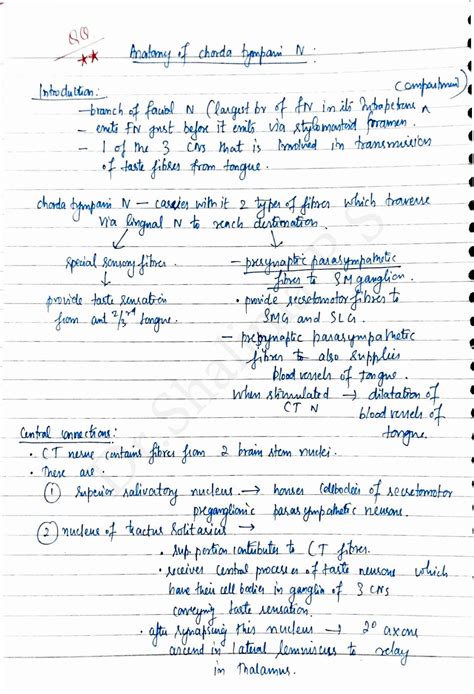 QQ
**
Anatomy of chorda tympani N :
Introduction:
- branch of facial N (largest br of FN in its Intrapetrous ^ compartment)
- exits FN just before it exits via stylomastoid foramen -
- 1 of the 3 CNs that is involved in transmission
of taste fibres from tongue.
chorda tympani N — carries with it 2 types of fibres which traverse
via lingual N to reach destination.
special sensory fibres
↓
provide taste sensation
from ant 2/3rd tongue.
- presynaptic parasympathetic
fibres to SM ganglion.
• provide secretomotor fibres to
SMG and SLG.
- presynaptic parasympathetic
fibres to also supplies
blood vessels of tongue.
when stimulated → dilatation of
CT N blood vessels of
tongue.
Central connections:
• CT nerve contains fibres from 2 brain stem nuclei.
• These are.
① superior salivatory nucleus → houses cell bodies of secretomotor
preganglionic parasympathetic neurons.
② nucleus of tractus Solitarius -
• sup portion contributes to CT fibres.
• receives central processes of taste neurons which
have their cell bodies in ganglia of 3 CNs
conveying taste sensation.
• after synapsing this nucleus → 2° axons
ascend in lateral lemniscus to relay
in Thalamus.